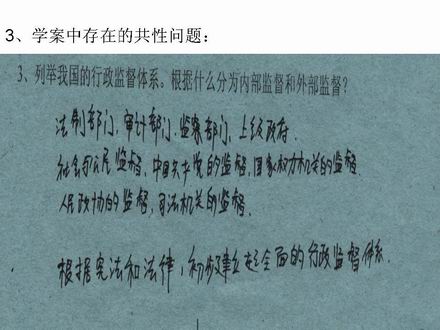 3、学案中存在的共性问题：
3、列举我国的行政监督体系。根据什么分为内部监督和外部监督？
法制部门，审计部门、监察部门，上级政府.
社会与公民监督、中国共产党的监督，国家权力机关的监督、
人民政协的监督，司法机关的监督.
根据宪法和法律，初步建立起全面的行政监督体系.